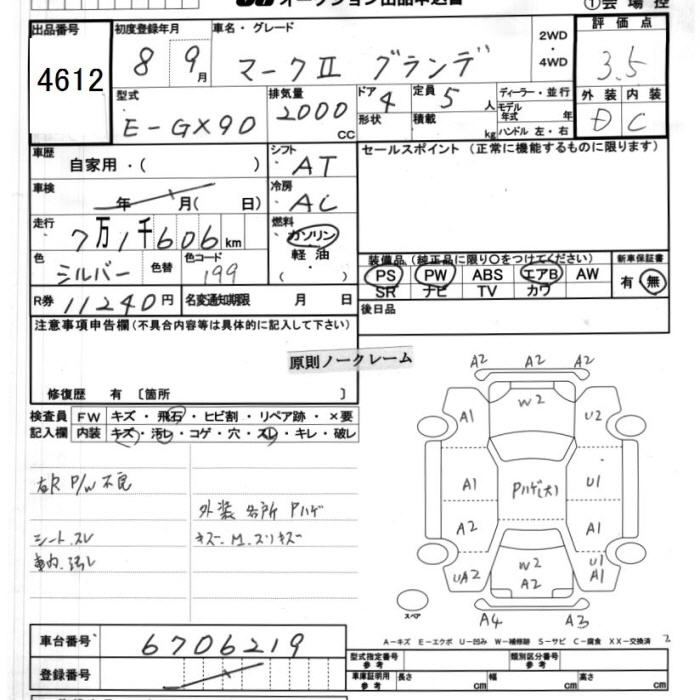 オークション出品申込書
①会場控
出品番号
4612
初度登録年月
8 9月
車名・グレード
マークⅡ グランデ
2WD・4WD
評価点
3.5
型式
E-GX90
排気量
2000cc
ドア 4
形状
定員 5人
積載 kg
ディーラー・並行
モデル年式 年
ハンドル 左・右
外装 内装
D C
車歴
自家用・( )
シフト
AT
セールスポイント (正常に機能するものに限ります)
車検
年 月( 日)
冷房
AC
走行
7万1千606km
燃料
ガソリン
軽油
・( )
色
シルバー
色替
色コード
199
装備品 (純正品に限り○をつけてください)
PS PW ABS エアB AW
SR ナビ TV カワ
新車保証書
有 無
R券 11240円
名変通知期限 月 日
後日品
注意事項申告欄 (不具合内容等は具体的に記入して下さい)
原則ノークレーム
修復歴 有 〔箇所 〕
検査員記入欄
FW キズ・飛石・ヒビ割・リペア跡・×要
内装 キズ・汚レ・コゲ・穴・スレ・キレ・破レ
右R P/W 不良
外装 各所 Pハゲ
シート スレ
キズ M.スリキズ
車内.汚レ
A2 A2 A2
W2
A1 U2
A1 Pハゲ(大) U1
A2 A1
W2
A2
UA2 U1 A1
スペア
A4 A3
A-キズ E-エクボ U-凹み W-補修跡 S-サビ C-腐食 XX-交換済 2
車台番号
6706219
登録番号
型式指定番号 参考
類別区分番号 参考
車庫証明用 参考
長さ cm 幅 cm 高さ cm